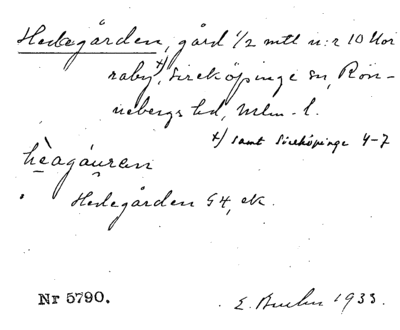 Hedegården, gård 1/2 mtl n:r 10 Nor
raby x), Sireköpinge sn, Rön-
nebergs hd, Mlm. l.
x) samt Sireköpinge 4-7
hèagáuren
Hedegården G4, ek.
Nr 5790.
E. 1933.